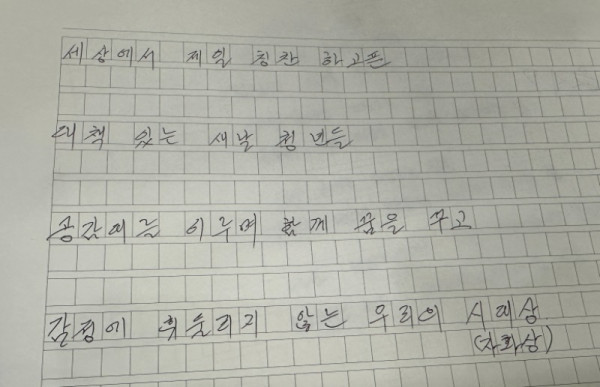 세상에서 제일 칭찬 하고픈
대책 있는 새날 청년들
공감대를 이루며 함께 꿈을 꾸고
감정에 휘둘리지 않는 우리의 시대상
(자화상)